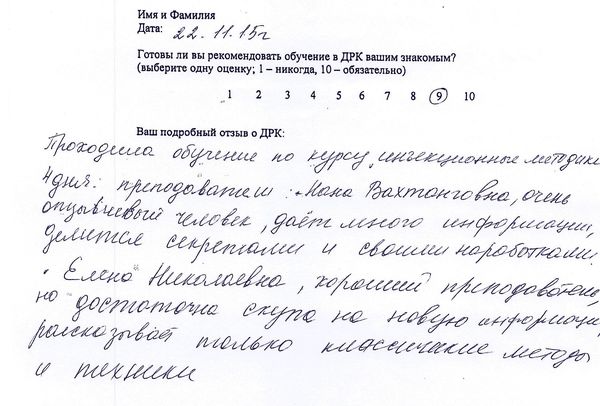 Имя и Фамилия
Дата: 22.11.15г
Готовы ли вы рекомендовать обучение в ДРК вашим знакомым?
(выберите одну оценку; 1 – никогда, 10 – обязательно)
1 2 3 4 5 6 7 8 9 10
Ваш подробный отзыв о ДРК:
Проходила обучение по курсу „инъекционные методики
4 дня: преподаватели: • Мака Вахтанговна, очень
отзывчивый человек, даёт много информации,
делится секретами и своими наработками.
• Елена Николаевна, хороший преподаватель,
но достаточно скупа на новую информаци
рассказывает только классические методы
и техники